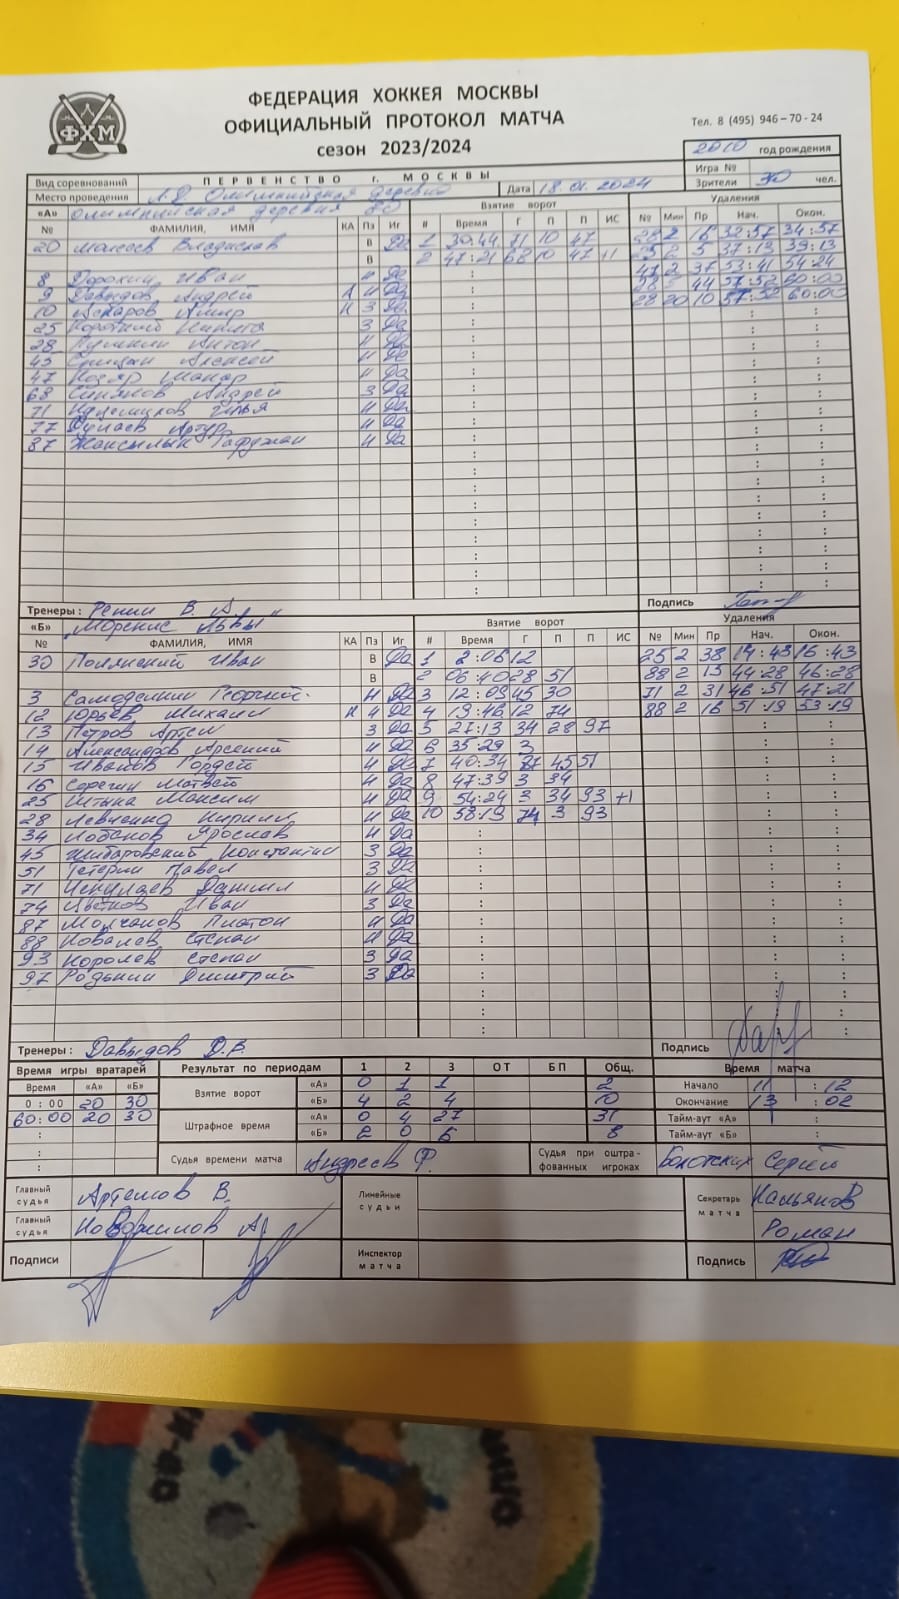 ФЕДЕРАЦИЯ ХОККЕЯ МОСКВЫ
ОФИЦИАЛЬНЫЙ ПРОТОКОЛ МАТЧА
сезон 2023/2024
ФХМ
Тел. 8 (495) 946 – 70 - 24
2010 год рождения
Вид соревнований ПЕРВЕНСТВО г. МОСКВЫ Игра №
Место проведения Л.Д. Олимпийская деревня Дата 18.01.2024 Зрители 30 чел.
«А» Олимпийская деревня 80 Взятие ворот Удаления
№ ФАМИЛИЯ, ИМЯ КА Пз Иг # Время Г П П ИС № Мин Пр Нач. Окон.
20 Моисеев Владислав В Да 1 30:44 71 10 47 28 2 16 32:57 34:57
В 2 47:21 68 10 47 +1 25 2 5 37:13 39:13
8 Дорохин Иван Н Да 47 2 37 53:41 54:24
9 Давыдов Андрей А Н Да 28 44 57:52 60:00
10 Аскаров Амир К З Да 28 20 10 57:52 60:00
25 Короткий Никита З Да
28 Пушкин Антон Н Да
43 Алексей Н Да
47 Н Да
68 Андрей З Да
71 Илья Н Да
77 Артур Н Да
87 Н Да
Тренеры: Репин В. А. Подпись
«Б» "Моржис Львы" Взятие ворот Удаления
№ ФАМИЛИЯ, ИМЯ КА Пз Иг # Время Г П П ИС № Мин Пр Нач. Окон.
30 Полянский Иван В Да 1 2:06 12 25 2 38 14:43 16:43
В 2 06:40 28 51 88 2 15 44:28 46:28
3 Георгий Н Да 3 12:09 45 30 71 2 31 46:51 47:21
12 Юрьев Михаил К Н Да 4 19:46 12 74 88 2 16 51:19 53:19
13 Петров Артем З Да 5 27:13 34 28 97
14 Александров Арсений Н Да 6 35:29 3
15 Иванов Гордей Н Да 7 40:34 45 51
16 Серегин Матвей Н Да 8 47:39 3 34
25 Штыка Максим Н Да 9 54:24 3 34 93 +1
28 Левченко Кирилл Н Да 10 58:19 74 3 93
34 Лобанов Ярослав Н Да
45 Константин З Да
51 Тетерин Павел З Да
71 Даниил Н Да
74 Цветков Иван З Да
87 Молчанов Платон Н Да
88 Ковалев Степан Н Да
93 Королев Степан З Да
97 Родькин Дмитрий З Да
Тренеры: Давыдов Д.В. Подпись
Время игры вратарей Результат по периодам 1 2 3 ОТ БП Общ. Время матча
Время «А» «Б» Взятие ворот «А» 0 1 1 2 Начало 11 : 12
0:00 20 30 «Б» 4 2 4 10 Окончание 13 : 02
60:00 20 30 Штрафное время «А» 0 4 27 31 Тайм-аут «А» :
«Б» 2 0 6 8 Тайм-аут «Б» :
Судья времени матча Андреев Ф. Судья при оштра-фованных игроках Сергей
Главный судья Артемов В. Линейные судьи Секретарь матча
Главный судья Роман
Подписи Инспектор матча Подпись